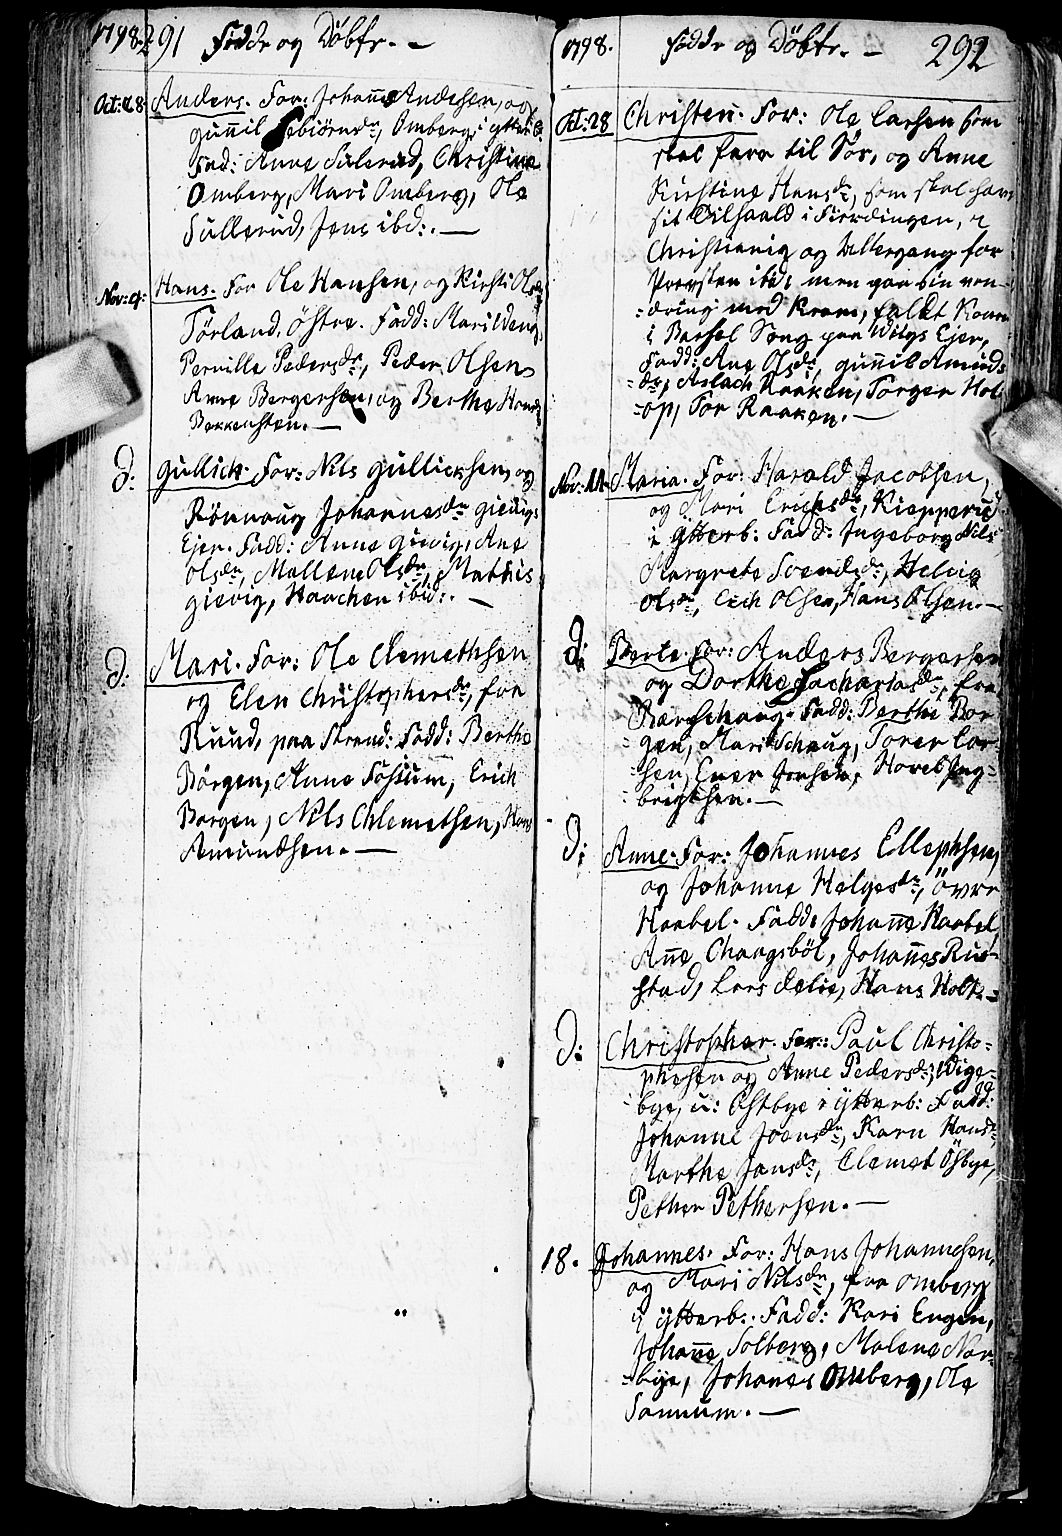 1798. 291 Födde og Döbte. –
Oct: 28 Anders. For: Johanne Andersen, og
gunnil Tebiörnsdr, Omberg i ytterb.
Fad: Anne Sulerud, Christine
Omberg, Mari Omberg, Ole
Sullerud, Jens ibd:. —
Nov: 4: Hans. For Ole Hansen, og Kirsti Olsdr
Törland, östre. Fadd: Mari Weng,
Pernille Pedersdr, Peder Olsen,
Anne Bergersen, og Berthe Hansdr
Bekkensten. —
D: Gullich. For: Nils Gullichsen, og
Rönnaug Johannesdr gievigs
Ejer. Fadd: Anne gievig, Ane
Olsdr, Mallene Olsdr, Mathis
gievig, Haachen ibid:. —
D: Mari. For: Ole Clemethsen
og Elen Christophersdr, fra
Ruud, paa Strand: Fadd: Berthe
Börgen, Anne Fossum, Erich
Borgen, Nils Chlemetsen, Hans
Amundsen. —
1798. Födde og Döbte. – 292
Oct: 28 Christen. For: Ole Larsen som
skal fare til Söe, og Anne
Kirstine Hansdr, som skal have
sit Tilhold i Fierdingen, i
Christiania og Altergang for
Præsten ibd: men paa sin van-
-dring med Kram, faldt Konen
i Barsel Seng paa Wilgs Ejer,
Fadd: Ane Olsdr, gunnil Amunds-
-dr, Aslach Raaken, Torger Hol-
-op, Tor Raaken. —
Nov: 11. Maria. For: Harald Jacobsen,
og Mari Erichsdr, Kiepperud
i ytterb: Fadd: Ingeborg Nils
Margrete Svendsdr, Helvig
Olsdr, Erich Olsen, Hans Olsen. —
D: Berte. For: Anders Bergersen
og Dorthe Zachariasdr, fra
Bærsehaug. Fadd: Berthe Bor-
-gen, Mari Schaug, Torer Lar-
-sen, Ener Jensen, Havel Ing-
brigtsen. —
D: Anne. For: Johannes Ellephsen,
og Johanne Helgesdr, övre
Haabel. Fadd: Johane Haabel,
Ane Chaagsböl, Johannes Ru-
stad, Lars Delie, Hans Holt. —
D: Christopher. For: Paul Christo-
phersen og Anne Pedersdr, Wige-
bye, u: Östbye i ytterb: Fadd:
Johanne Joensdr, Karn Hansdr
Marthe Jansdr, Clemet Ösbye,
Pether Pethersen. —
18. Johannes. For: Hans Johannesen,
og Mari Nilsdr, fra Omberg
i ytterb:. Fadd: Kari Engen,
Johane Solberg, Malene Nor-
-bye, Johanes Omberg, Ole
Sannum. —